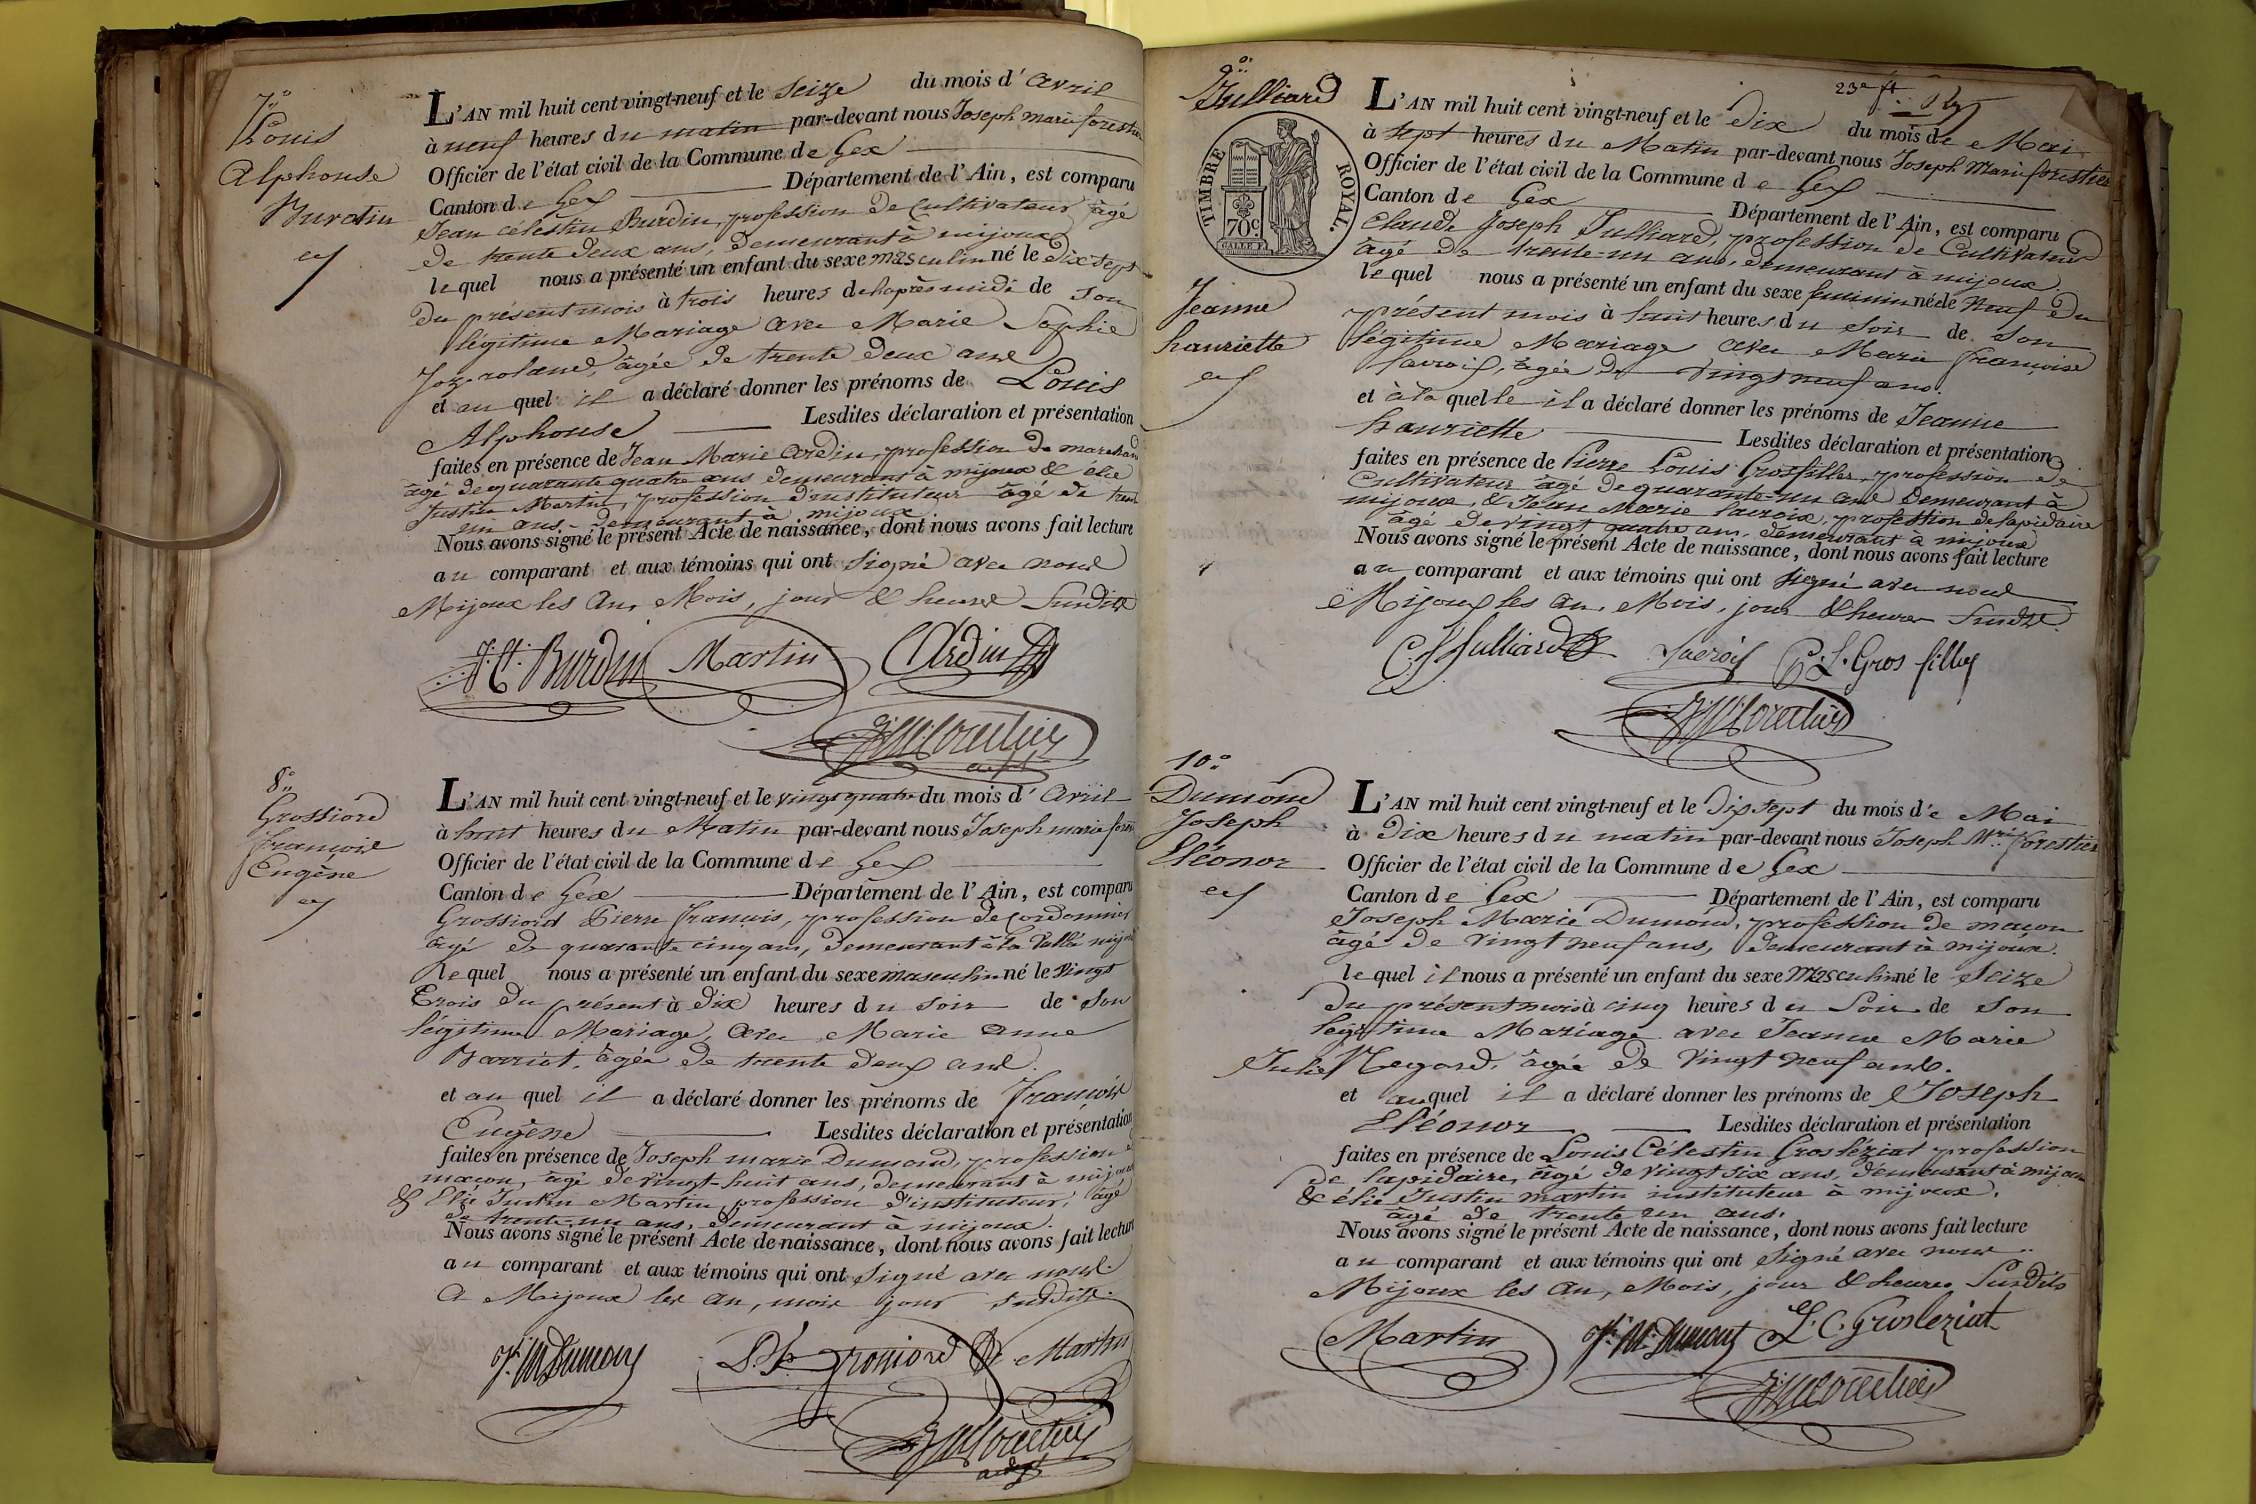 7°
Louis
Alphonse
Burdin
L'AN mil huit cent vingt-neuf et le Seize du mois d'avril
à neuf heures du matin par-devant nous Joseph marie forestier
Officier de l'état civil de la Commune de Gex
Canton de Gex Département de l'Ain, est comparu
Jean célestin Burdin, profession de Cultivateur âgé
de trente deux ans, demeurant à mijoux
lequel nous a présenté un enfant du sexe masculin né le dix sept
du présent mois à trois heures de l'après midi de son
légitime Mariage avec Marie Sophie
Jozeroland, âgée de trente deux ans
et au quel il a déclaré donner les prénoms de Louis
Alphonse Lesdites déclaration et présentation
faites en présence de Jean Marie Ardin, profession de marchand
âgé de quarante quatre ans demeurant à mijoux & élie
Justin Martin, profession d'instituteur âgé de trente
un ans, demeurant à mijoux
Nous avons signé le présent Acte de naissance, dont nous avons fait lecture
au comparant et aux témoins qui ont signé avec nous
Mijoux les an, Mois, jour & heures susdits
J. C. Burdin Martin Ardin
J M forestier
8°
Grossiord
françois
Eugène
L'AN mil huit cent vingt-neuf et le vingt quatre du mois d'avril
à huit heures du Matin par-devant nous Joseph marie
Officier de l'état civil de la Commune de Gex
Canton de Gex Département de l'Ain, est comparu
Grossiord Pierre françois, profession de Cordonnier
âgé de quarante cinq ans, demeurant à la vallée mijoux
lequel nous a présenté un enfant du sexe masculin né le vingt
trois du présent à dix heures du soir de son
légitime Mariage, avec Marie anne
âgée de trente deux ans.
et au quel il a déclaré donner les prénoms de françois
Eugène Lesdites déclaration et présentation
faites en présence de Joseph marie Dumond, profession de
maçon, âgé de vingt-huit ans, demeurant à mijoux
& Elie Justin Martin, profession d'instituteur, âgé
de trente un ans, demeurant à mijoux.
Nous avons signé le présent Acte de naissance, dont nous avons fait lecture
au comparant et aux témoins qui ont signé avec nous.
a Mijoux les an, mois jour susdits.
J. M Dumond P. f. grossiord Martin
J M forestier
adjt
9°
Julliard
Jeanne
hanriette
TIMBRE ROYAL
70c.
23e ft.
L'AN mil huit cent vingt-neuf et le Dix du mois de Mai
à sept heures du Matin par-devant nous Joseph Marie forestier
Officier de l'état civil de la Commune de Gex
Canton de Gex Département de l'Ain, est comparu
Claude Joseph Julliard, profession de Cultivateur
âgé de trente-un ans, demeurant à mijoux.
lequel nous a présenté un enfant du sexe feminin né le Neuf du
présent mois à huit heures du soir de son
légitime Mariage avec Marie françoise
lavroix, âgée de vingt neuf ans.
et à la quelle il a déclaré donner les prénoms de Jeanne
hanriette Lesdites déclaration et présentation
faites en présence de Pierre Louis Grosfilley, profession de
Cultivateur âgé de quarante-un ans demeurant à
mijoux, & Jean Marie lacroix, profession de lapidaire
âgé de vingt quatre ans, demeurant à mijoux
Nous avons signé le présent Acte de naissance, dont nous avons fait lecture
au comparant et aux témoins qui ont signé avec nous
Mijoux les an, Mois, jour & heures susdits.
C. J Julliard Lacroix P. L. Gros filley
J M forestier
10°
Dumond
Joseph
Eléonor
L'AN mil huit cent vingt-neuf et le Dix sept du mois de Mai
à Dix heures du matin par-devant nous Joseph Mrie forestier
Officier de l'état civil de la Commune de Gex
Canton de Gex Département de l'Ain, est comparu
Joseph Marie Dumond, profession de maçon
âgé de vingt neuf ans, demeurant à mijoux.
lequel il nous a présenté un enfant du sexe Masculin né le Seize
du présent mois à cinq heures du Soir de son
légitime Mariage avec Jeanne Marie
Julie Regard, âgée de vingt neuf ans.
et au quel il a déclaré donner les prénoms de Joseph
Eléonor Lesdites déclaration et présentation
faites en présence de Louis Célestin Grosléziat profession
de lapidaire, âgé de vingt six ans, demeurant à mijoux
& élie Justin martin instituteur à mijoux,
âgé de trente un ans.
Nous avons signé le présent Acte de naissance, dont nous avons fait lecture
au comparant et aux témoins qui ont signé avec nous
Mijoux les an, Mois, jour & heures susdits
Martin J. M. Dumont L. C. Grosleziat
J M forestier